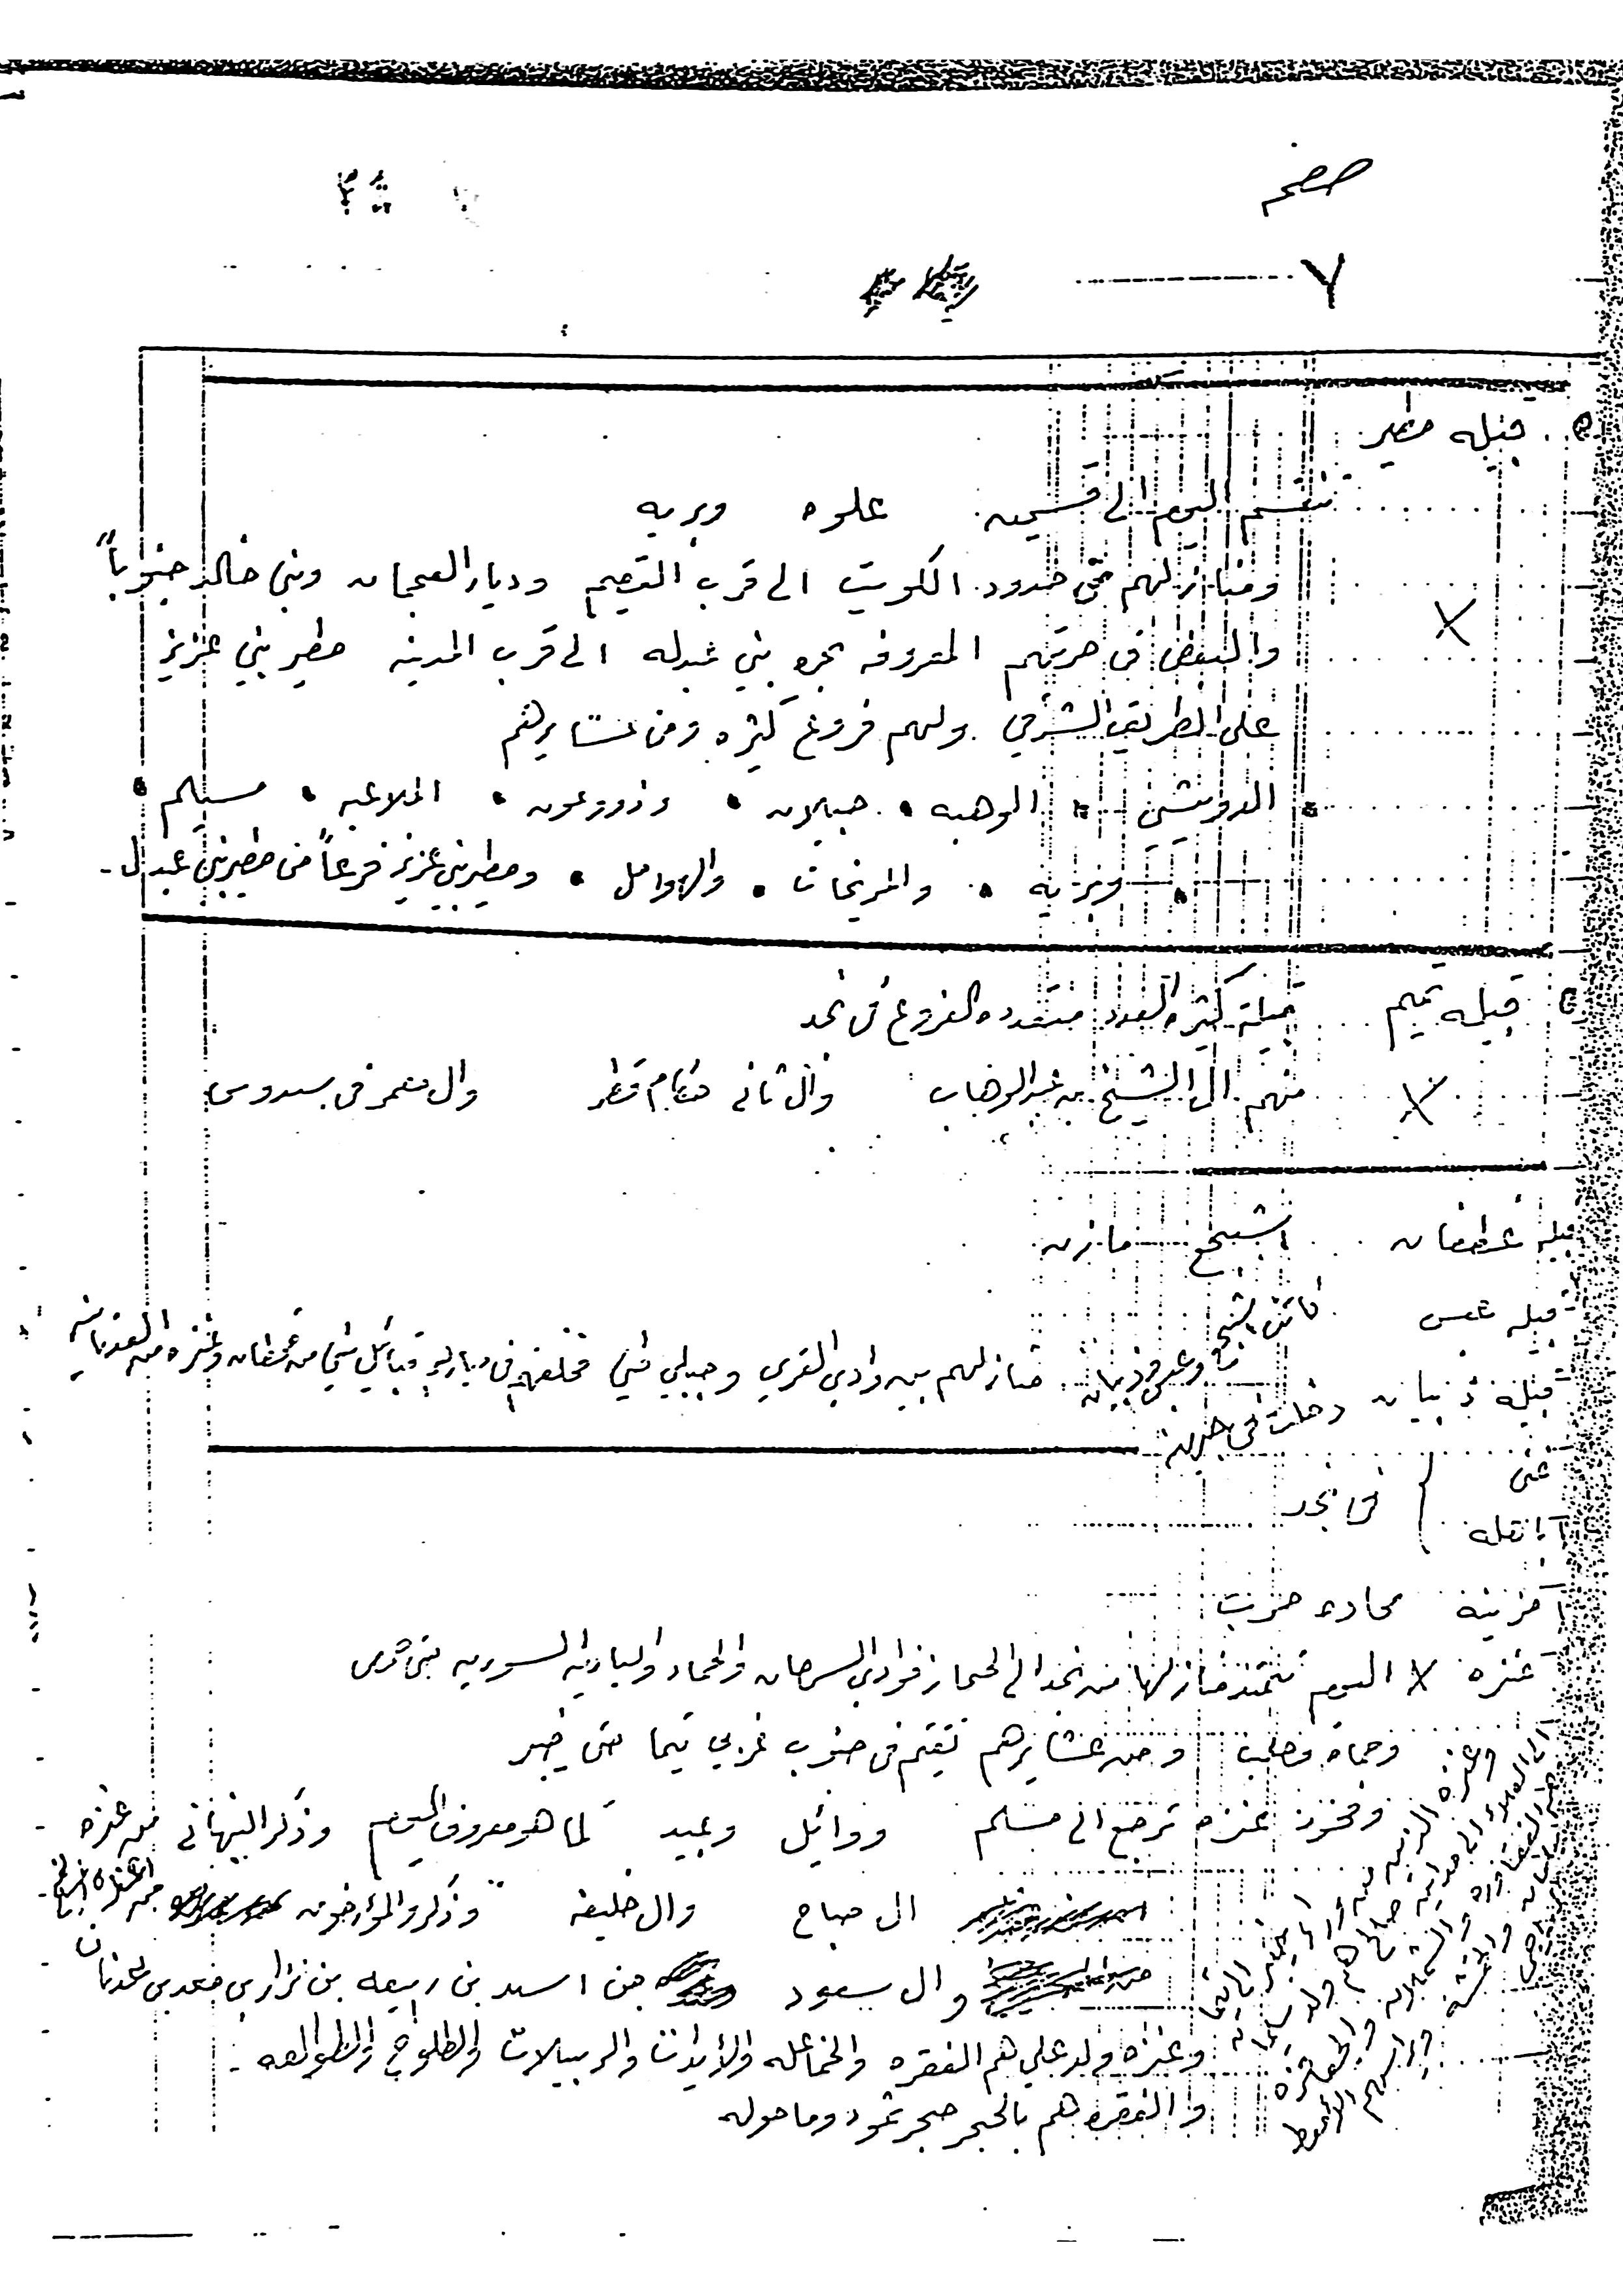 ٧
قبيله مطير
تنقسم اليوم الى قسمين علوه وبريه
ومنازلهم من حدود الكويت الى قرب القصيم وديار العجمان وبني خالد جنوباً
والبعض في حرتهم المعروفه بحره بني عبدله الى قرب المدينه مطير بني عزيز
على الطريق الشرقي ولهم فروع كثيره ومن عشايرهم
الدويش • الوهبه • جبلان • وذوو عون • الملاعبه • مسيلم •
• وبريه • والمريخات • والهوامل • ومطير بني عزيز فرعاً من مطير بني عبدل -
قبيله تميم قبيلة كثيره العدد متعدده الفروع في نجد
منهم ال الشيخ بن عبدالوهاب وال ثاني حكام قطر وال معمر في سدوس
قبيله غطفان اشجع مازن
قبيله عبس
قبيلة ذبيان دخلت في
وعبس وذبيان منازلهم بين وادي القرى وجبلي طي فخلفهم في ديارهم قبائل شتى من غطفان وعنزه من العدنانيه
غني
باهله } في نجد
مزينة محاده حرب
عنزه اليوم تمتد منازلها من نجد الى الحجاز فوادي السرحان والحماد والباديه السوريه
وحماه وحلب ومن عشايرهم تقيم في جنوب غربي تيما حتى خيبر
وفخوذ عنزه ترجع الى مسلم ووائل وعبيد كما هو معروف اليوم وذكر النبهاني من عنزه
ال صباح وال خليفه وذكر المؤرخون
وال سعود من اسد بن ربيعه بن نزار بن معد بن عدنان
وعنزه ولد علي هم الفقره والخماعله والأيدات والربيلات والطلوح والطوالعه -
والفقره هم بالحجر حجر ثمود وما حوله